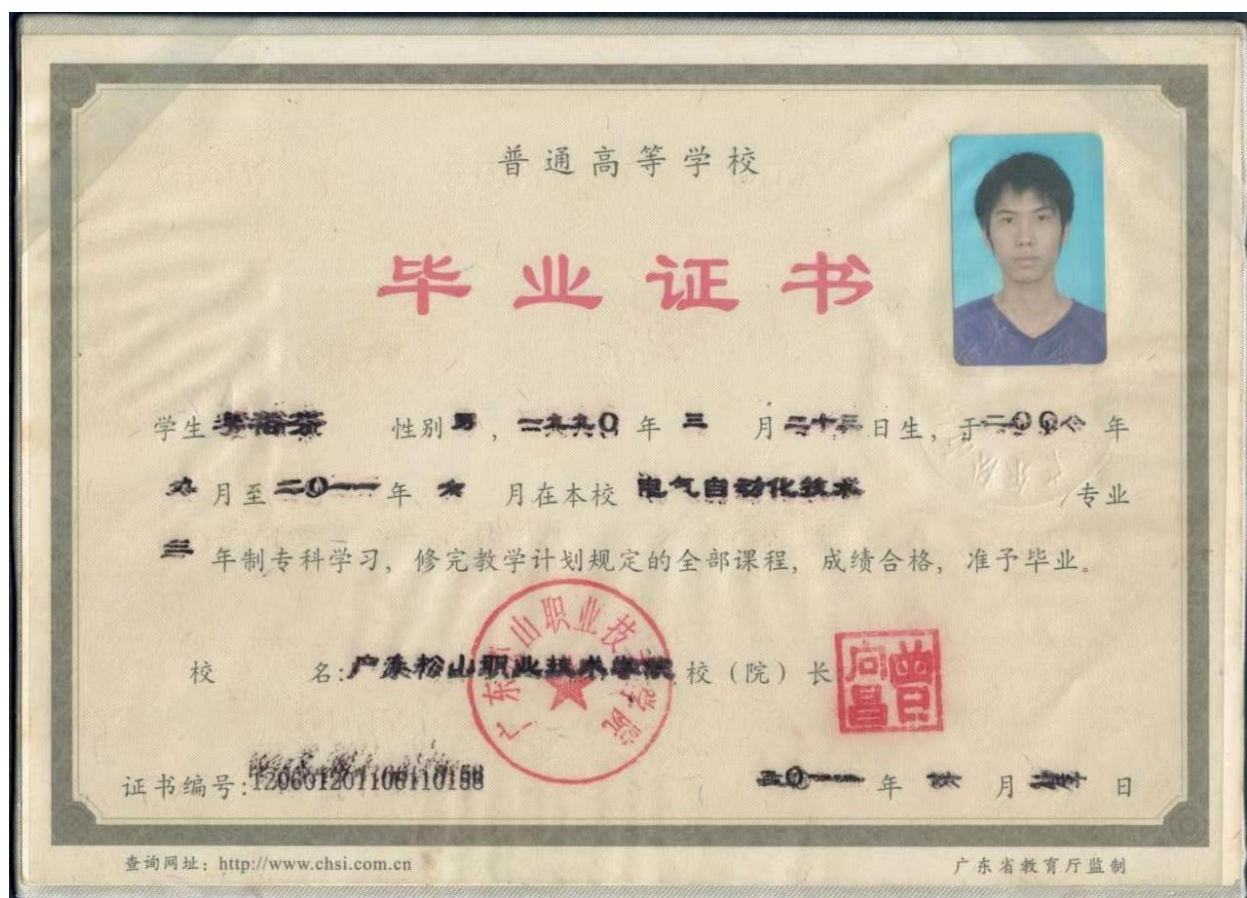 普通高等学校
毕业证书
学生 李裕芬 性别 男 , 一九九〇 年 三 月 二十三 日生, 于 二〇〇八 年
九 月至 二〇一一 年 六 月在本校 电气自动化技术 专业
三 年制专科学习, 修完教学计划规定的全部课程, 成绩合格, 准予毕业。
校 名: 广东松山职业技术学院 校(院)长
广东松山职业技术学院
曾向昌
证书编号: 120601201106110158
二〇一一 年 月 日
查询网址: http://www.chsi.com.cn
广东省教育厅监制